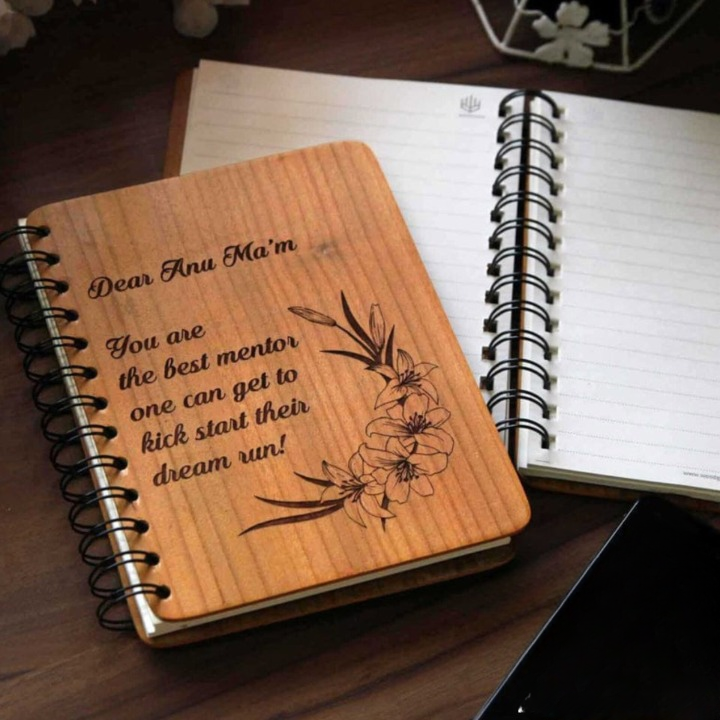 Dear Anu Ma'm
You are
the best mentor
one can get to
kick start their
dream run!